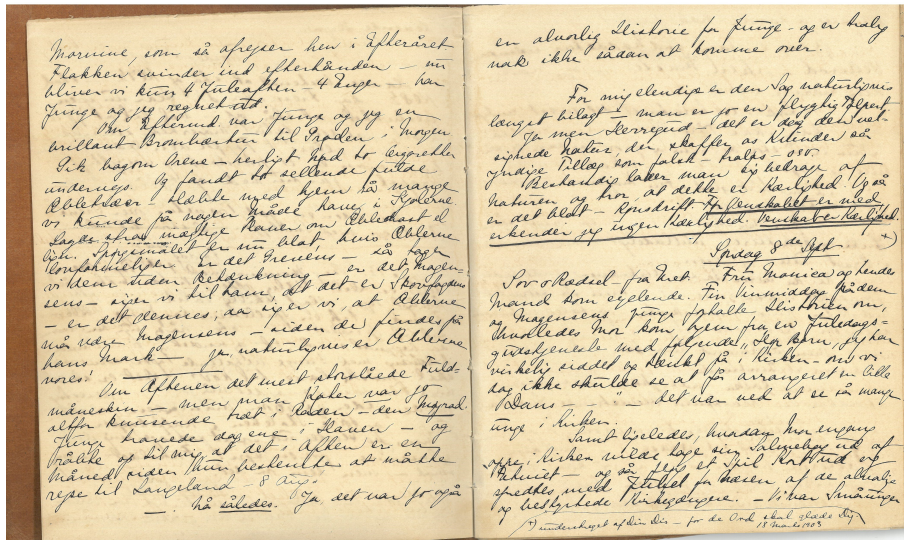 Mornine, som så afrejser hen i Efteråret
Flokken svinder ind efterhånden – nu
bliver vi kun 4 Juleaften – 4 Enger – har
Junge og jeg regnet ud.
Om Eftermd var Junge og jeg en
brillant Brombærtur til Grøden i Morgen
Gik bagom Orene – herligt
undervejs. Og fandt to sellende fulde
Æbletræer slæbte med hjem så mange
vi kunde på nogen måde have i Kjolerne
mægtige Planer om Æblemost o
lign. Spørgsmålet er nu blot, hvis Æblerne
er det Grevens – så tager
vi dem uden Betænkning – er det Mogen-
sens – siger vi til ham, at det er Skovfogdens
– er det dennes, da siger vi, at Æblerne
må være Mogensens – siden de findes på
hans Mark – ja, naturligvis er Æblerne
vores!
Om Aftenen det mest storslåede Fuld-
måneskin – men man var jo
altfor knusende træt i – den
Junge travede dagene i Haven – og
til mig at det i Aften er en
Måned siden hun bestemte at måtte
rejse til Langeland – 8 Aug.
– Nå således. Ja det var jo også
en alvorlig Historie for Junge – og er trolig
nok ikke sådan at komme over.
For mig elendige er den Sag naturligvis
længst bilagt – man er jo en flygtig
Ja men Herregud – det er dog den vel-
signede Natur der skaffer os Kvinder så
yndige Tillæg som falsk – troløs – osv.
Bestandig lader man sig bedrage af
Naturen og tror, at dette er Kærlighed. Og så
er det blot – Kønsdrift – før Venskabet er med
erkender jeg ingen Kærlighed. Venskab er Kærlighed.
+)
Søndag 8de Spt.
Sov o Rædsel fra Fru Monica og hendes
Mand kom cyclende. Fin Vinmiddag på dem
og Mogensens Junge fortalte Historien om,
hvorledes Mor kom hjem fra en Juledags-
gudstjeneste med følgende „Ih Børn, jeg har
virkelig siddet og tænkt på i Kirken – om vi
dog ikke skulde se at få arrangeret en lille
Dans – – " – det var ved at se så mange
unge i Kirken.
Samt ligeledes, hvordan Mor engang
oppe i Kirken vilde tage sin Salmebog ud af
– og så fløj et Spil Kort ud og
spredtes med for Næsen af de alvorlige
og bestyrtede Kirkegængere. – Vi var Småunger
+) understreget af Din Dis – for de Ord skal glæde Dig.
18 Marts 1903